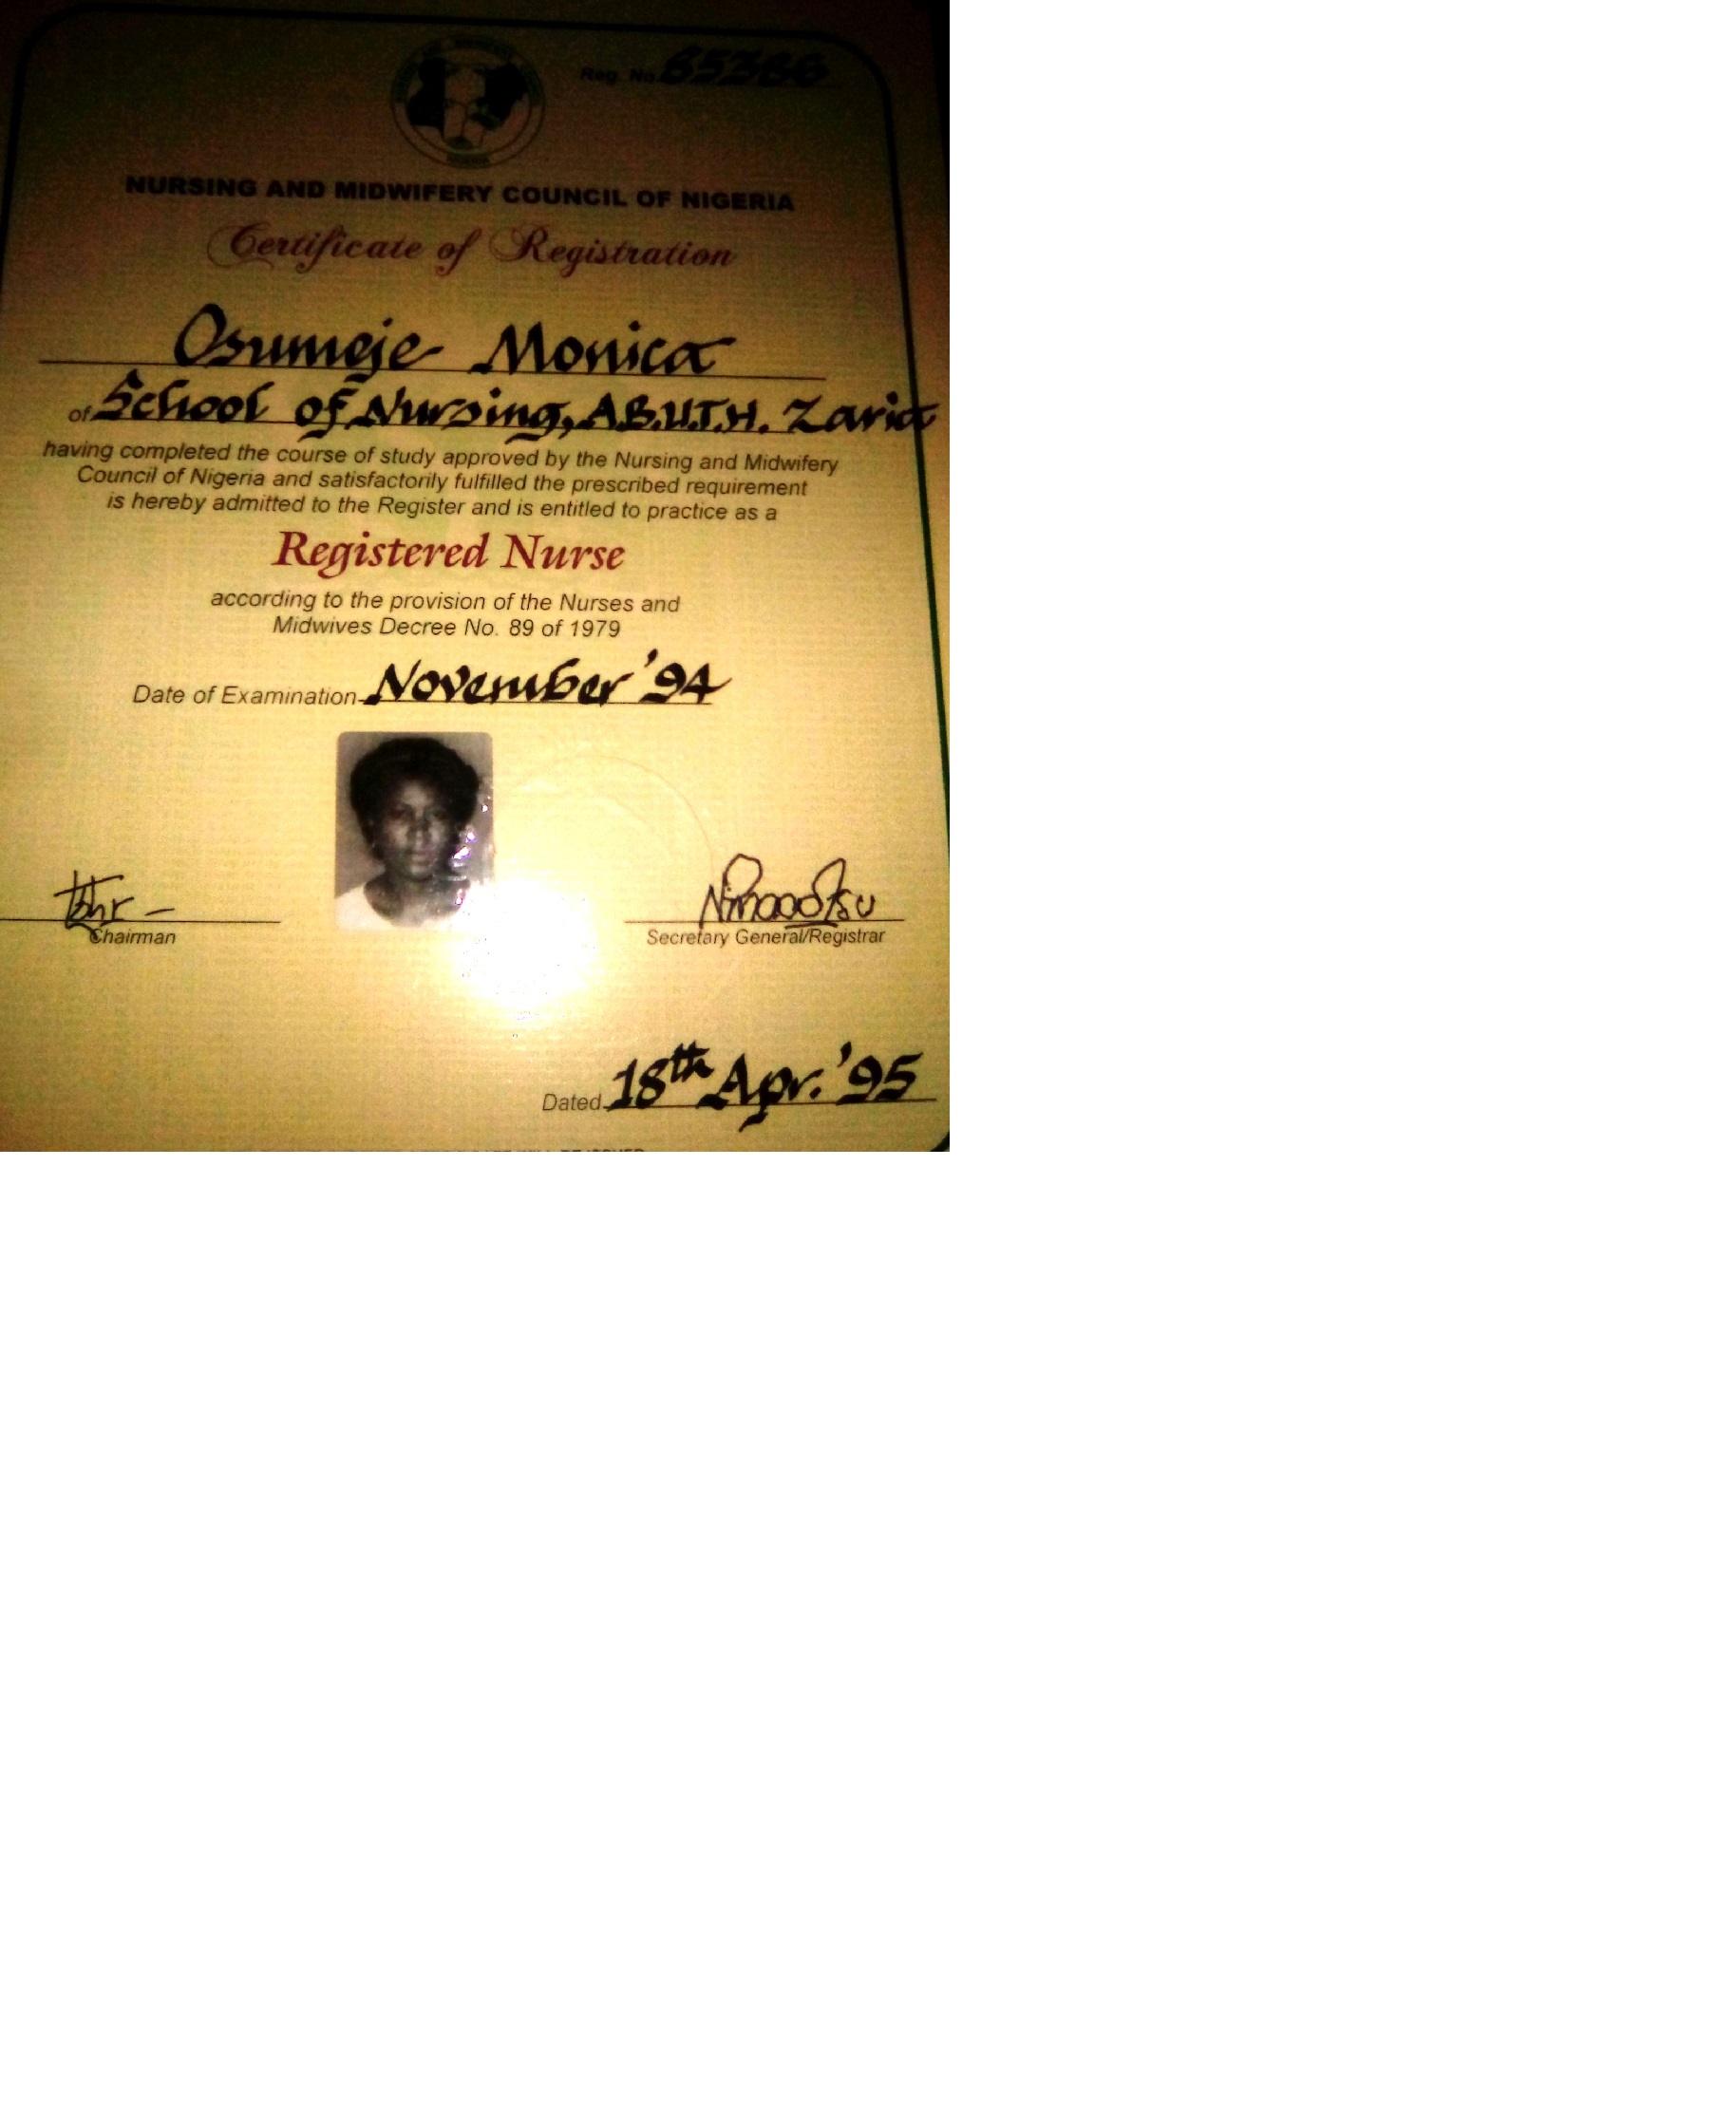 Reg. No.
NURSING AND MIDWIFERY COUNCIL OF NIGERIA
Certificate of Registration
Osumeje Monica
of School of Nursing, A.B.U.T.H. Zaria
having completed the course of study approved by the Nursing and Midwifery
Council of Nigeria and satisfactorily fulfilled the prescribed requirement
is hereby admitted to the Register and is entitled to practice as a
Registered Nurse
according to the provision of the Nurses and
Midwives Decree No. 89 of 1979
Date of Examination November '94
Chairman
Secretary General/Registrar
Dated 18th Apr. '95